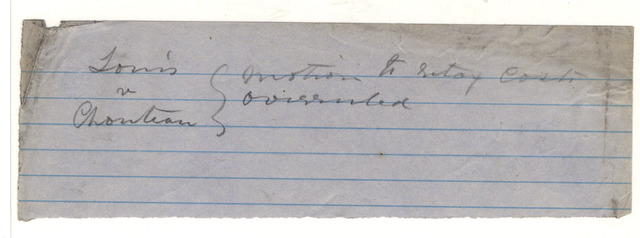 Louis
v
Chouteau
Motion to retax Costs
overruled